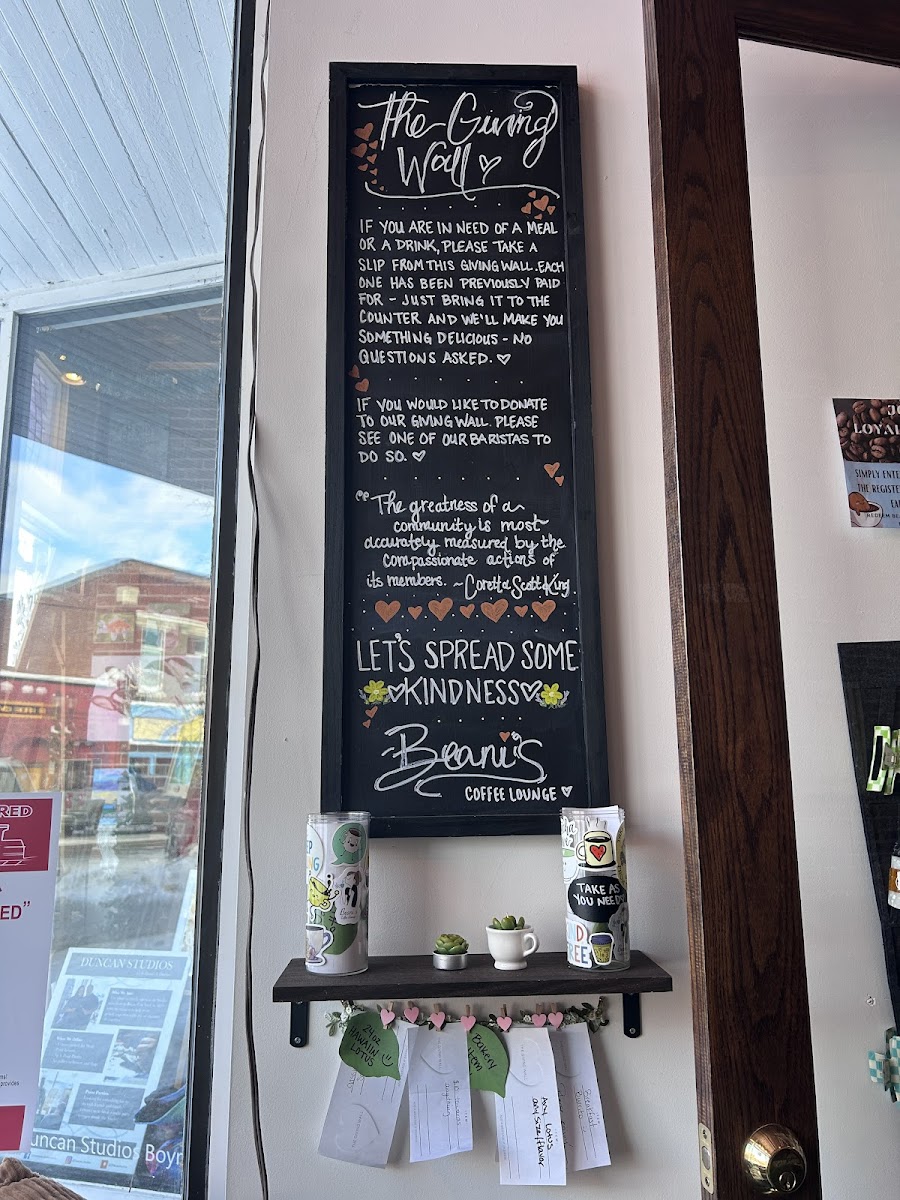 The Giving
Wall
IF YOU ARE IN NEED OF A MEAL
OR A DRINK, PLEASE TAKE A
SLIP FROM THIS GIVING WALL. EACH
ONE HAS BEEN PREVIOUSLY PAID
FOR - JUST BRING IT TO THE
COUNTER AND WE'LL MAKE YOU
SOMETHING DELICIOUS - NO
QUESTIONS ASKED.
IF YOU WOULD LIKE TO DONATE
TO OUR GIVING WALL. PLEASE
SEE ONE OF OUR BARISTAS TO
DO SO.
"The greatness of a
community is most
accurately measured by the
compassionate actions of
its members. ~Coretta Scott King
LET'S SPREAD SOME
KINDNESS
Beani's
COFFEE LOUNGE
TAKE AS
YOU NEED
24oz
HAWAIIN
LOTUS
Bakery
Item
Any Lotus
any size/flavor
Breakfast
Burrito
LOYAL
SIMPLY ENTE
THE REGISTE
EA
RED
ED"
DUNCAN STUDIOS
uncan Studios Boyn